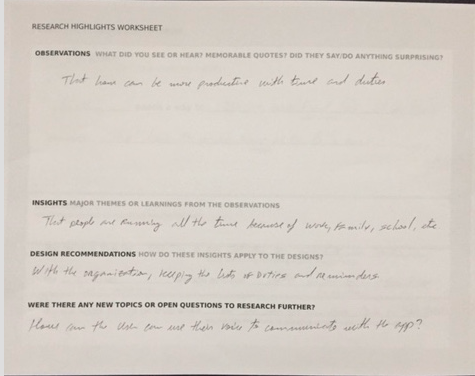 RESEARCH HIGHLIGHTS WORKSHEET
OBSERVATIONS WHAT DID YOU SEE OR HEAR? MEMORABLE QUOTES? DID THEY SAY/DO ANYTHING SURPRISING?
That can be more productive with time and duties
INSIGHTS MAJOR THEMES OR LEARNINGS FROM THE OBSERVATIONS
That people are running all the time because of work, family, school, etc
DESIGN RECOMMENDATIONS HOW DO THESE INSIGHTS APPLY TO THE DESIGNS?
With the organization, keeping the lists of duties and reminders
WERE THERE ANY NEW TOPICS OR OPEN QUESTIONS TO RESEARCH FURTHER?
the User can use their voice to communicate with the app?